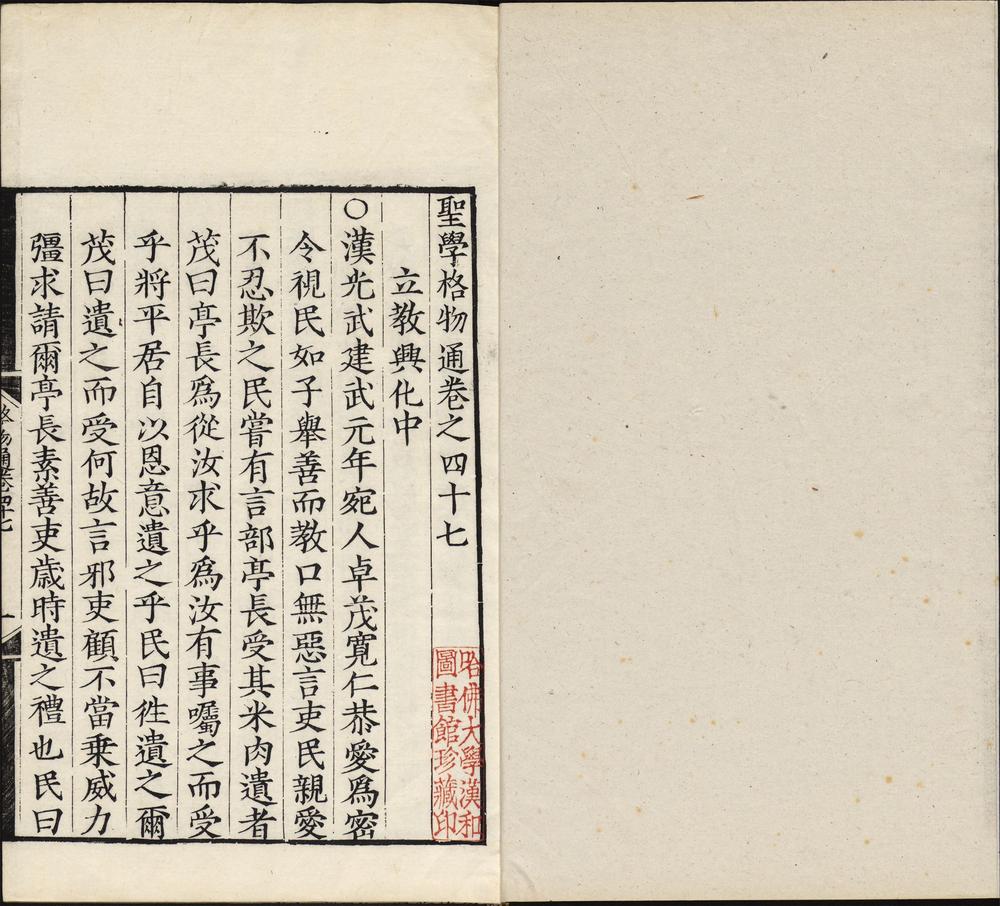 聖學格物通卷之四十七
立教興化中
○漢光武建武元年宛人卓茂寬仁恭愛爲密
令視民如子舉善而教口無惡言吏民親愛
不忍欺之民嘗有言部亭長受其米肉遺者
茂曰亭長爲從汝求乎爲汝有事囑之而受
乎將平居自以恩意遺之乎民曰徃遺之爾
茂曰遺之而受何故言邪吏顧不當乗威力
彊求請爾亭長素善吏歲時遺之禮也民曰
格物通卷四十七
一
哈佛大學漢和
圖書館珍藏印